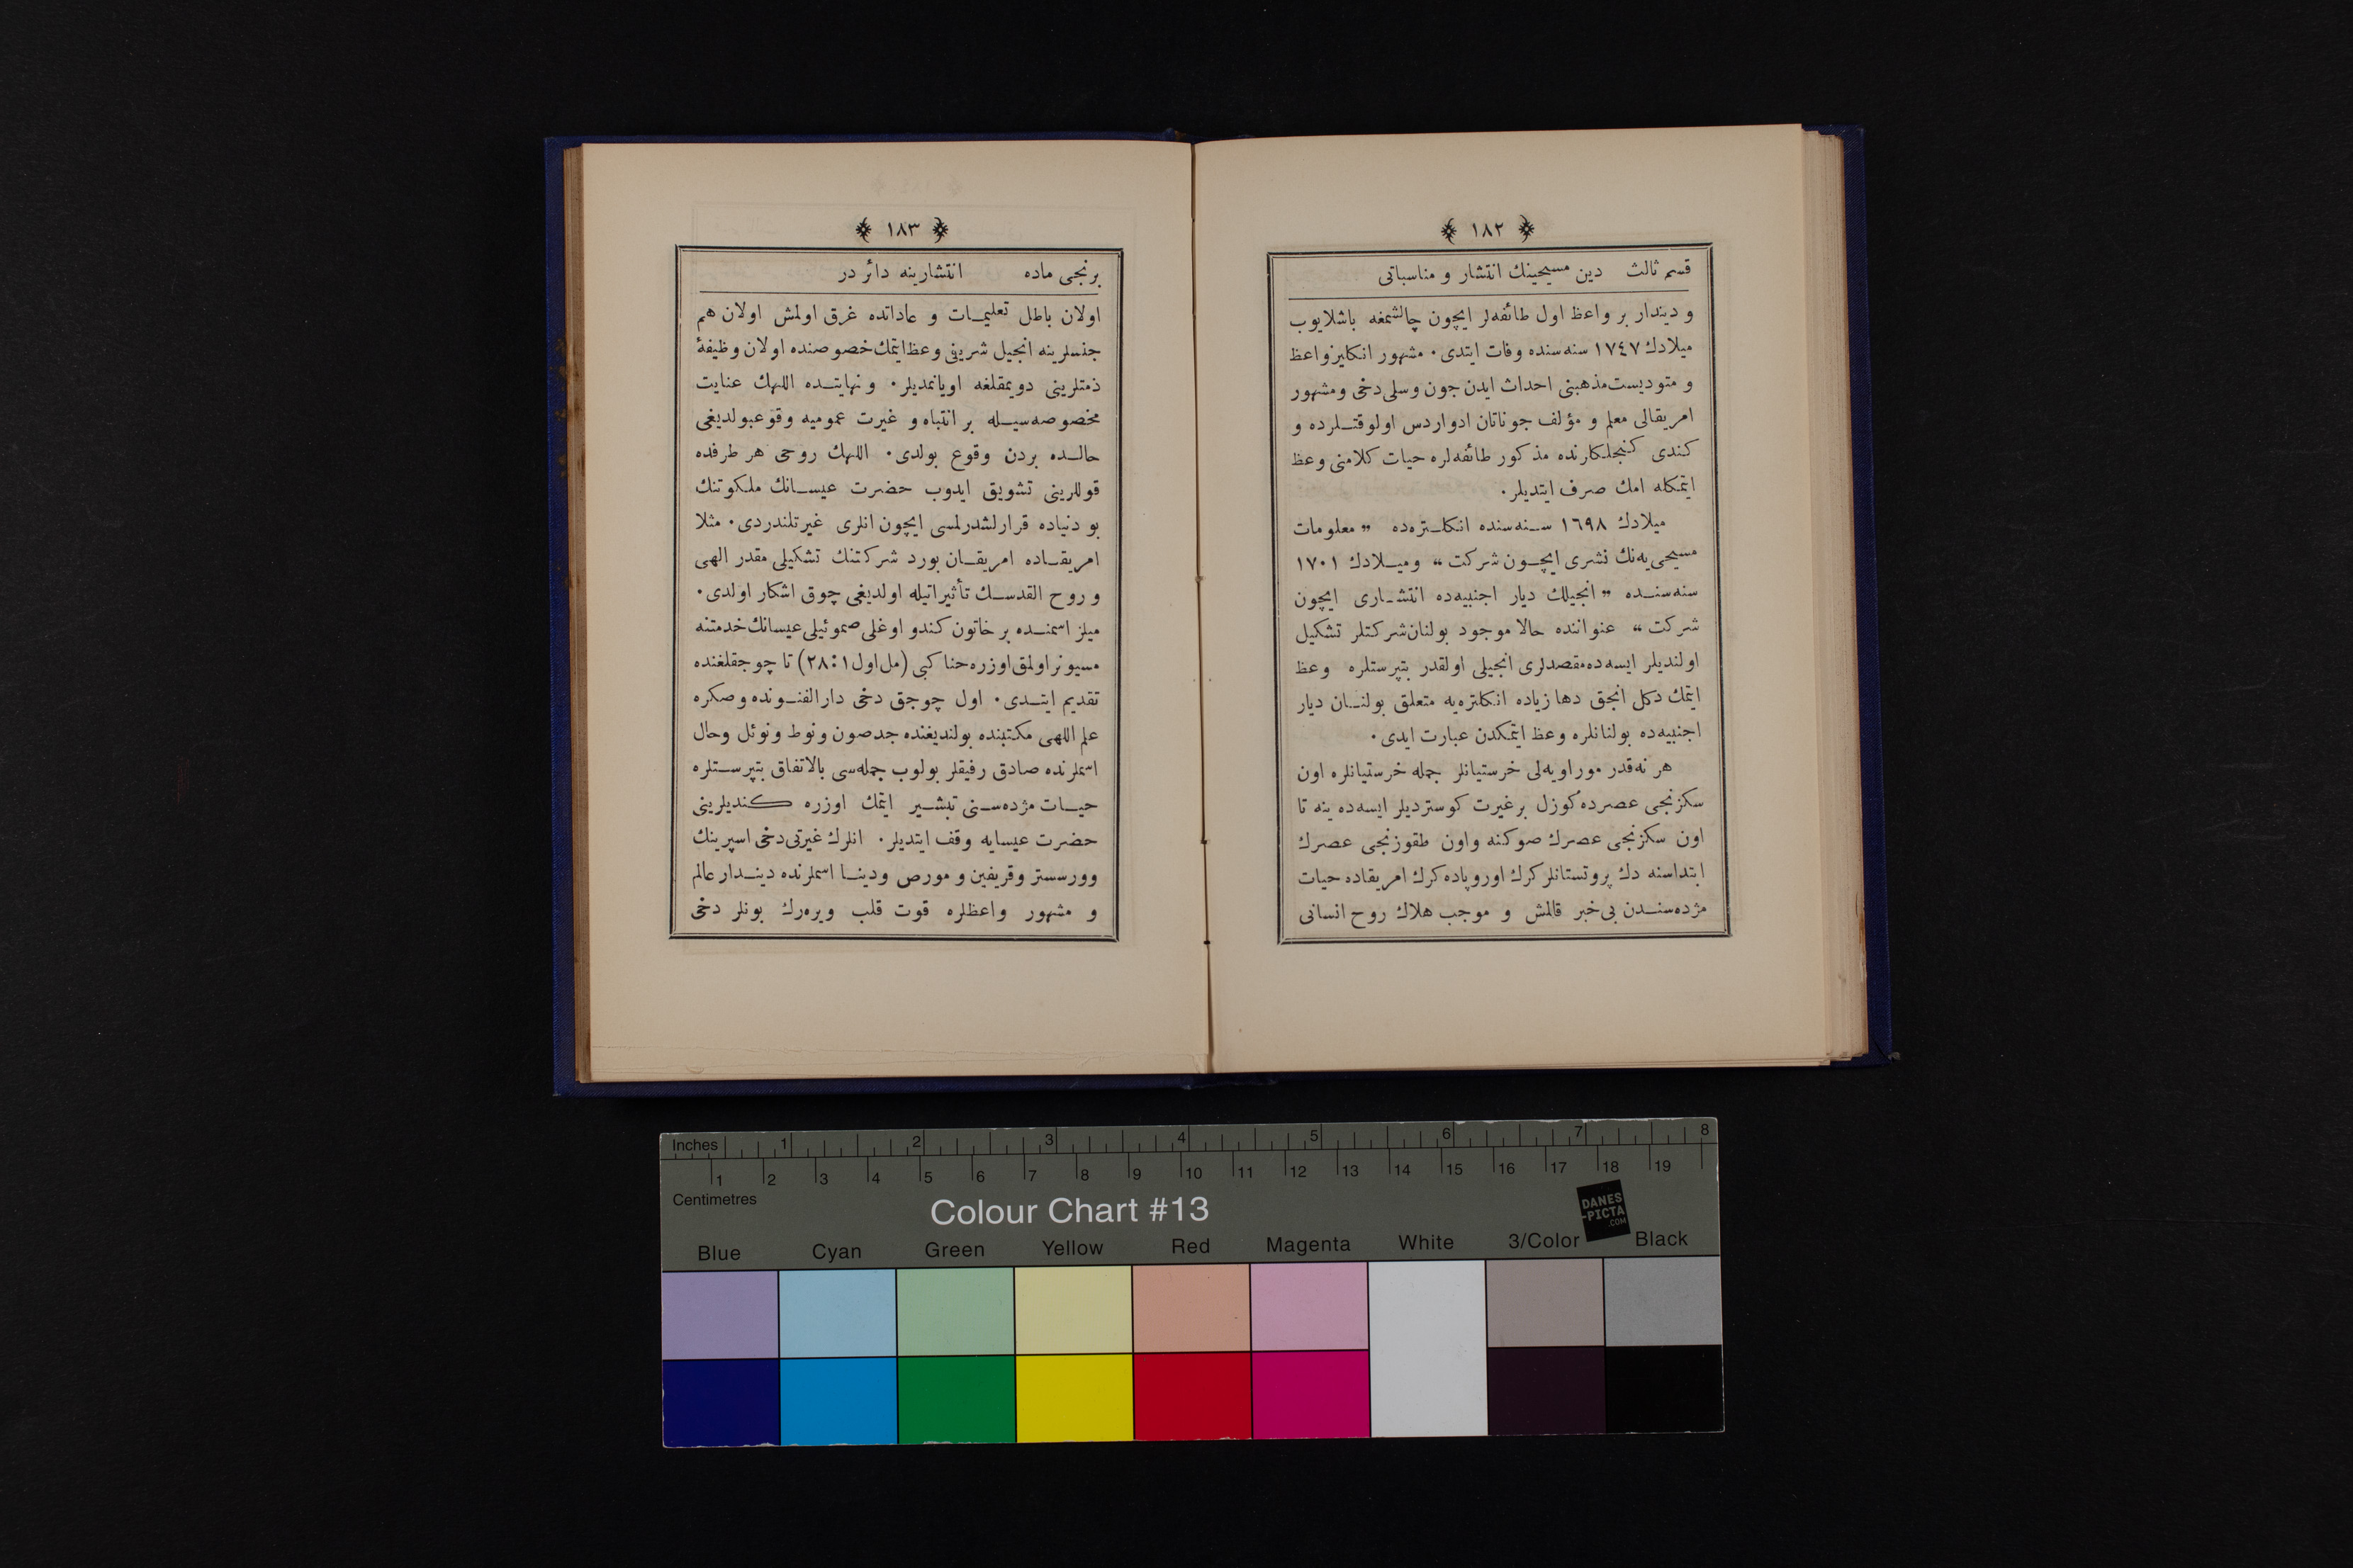 ١٨٢
قسم ثالث دين مسيحينك انتشار و مناسباتى
و ديندار بر واعظ اول طائفه‌لر ايچون چالشمغه باشلايوب
ميلادك ١٧٤٧ سنه‌سنده وفات ايتدى. مشهور انكليز واعظ
و متوديست مذهبنى احداث ايدن جون وسلى دخى و مشهور
امريقالى معلم و مؤلف جوناتان ادواردس اولوقتــلرده و
كندى كنجلكارنده مذكور طائفه‌لره حيات كلامنى وعظ
ايتمكله امك صرف ايتديلر.
ميلادك ١٦٩٨ ســنه‌سنده انكلــتره‌ده „ معلومات
مسيحى‌يه‌نك نشرى ايچــون شركت “ وميــلادك ١٧٠١
سنه‌سنــده „ انجيلك ديار اجنبيه‌ده انتشــارى ايچون
شركت “ عنواننده حالا موجود بولنان شركتلر تشكيل
اولنديلر ايسه‌ده مقصدلرى انجيلى اولقدر بتپرستلره وعظ
ايتمك دكل انجق دها زياده انكلتره‌يه متعلق بولنــان ديار
اجنبيه‌ده بولنانلره وعظ ايتمكدن عبارت ايدى.
هر نه‌قدر موراويه‌لى خرستيانلر جمله خرستيانلره اون
سكزنجى عصرده كوزل برغيرت كوسترديلر ايسه‌ده ينه تا
اون سكزنجى عصرك صوكنه واون طقوزنجى عصرك
ابتداسنه دك پروتستانلر كرك اوروپاده كرك امريقاده حيات
مژده‌سنــدن بى‌خبر قالمش و موجب هلاك روح انسانى
١٨٣
برنجى ماده انتشارينه دائر در
اولان باطل تعليمــات و عاداتده غرق اولمش اولان هم
جنسلرينه انجيل شريفى وعظ ايتمك خصوصنده اولان وظيفهٔ
ذمتلرينى دويمقلغه اويانمديلر. و نهايتــده اللهك عنايت
مخصوصه‌سيــله بر انتباه و غيرت عموميه وقوعبولديغى
حالــده بردن وقوع بولدى. اللهك روحى هر طرفده
قوللرينى تشويق ايدوب حضرت عيســانك ملكوتنك
بو دنياده قرارلشدرلمسى ايچون انلرى غيرتلندردى. مثلا
امريقــاده امريقــان بورد شركتنك تشكيلى مقدر الهى
و روح القدســك تأثيراتيله اولديغى چوق اشكار اولدى.
ميلز اسمنــده بر خاتون كندو اوغلى صموئيلى عيسانك خدمتنه
مسيونر اولمق اوزره حنا كبى (مل اول ١ : ٢٨) تا چوجقلغنده
تقديم ايتــدى. اول چوجق دخى دارالفنــونده و صكره
علم اللهى مكتبنده بولنديغنده جدصون و نوط و نوئل و حال
اسملرنده صادق رفيقلر بولوب جمله‌سى بالاتفاق بتپرســتلره
حيــات مژده‌ســنى تبشــير ايتمك اوزره كنديلرينى
حضرت عيسايه وقف ايتديلر. انلرك غيرتى دخى اسپرينك
وورسستر وقريفين و مورص ودينــا اسملرنده دينــدار عالم
و مشهور واعظلره قوت قلب ويره‌رك بونلر دخى
Inches 1 2 3 4 5 6 7 8
1 2 3 4 5 6 7 8 9 10 11 12 13 14 15 16 17 18 19
Centimetres
Colour Chart #13
DANES
-PICTA
.COM
Blue Cyan Green Yellow Red Magenta White 3/Color Black